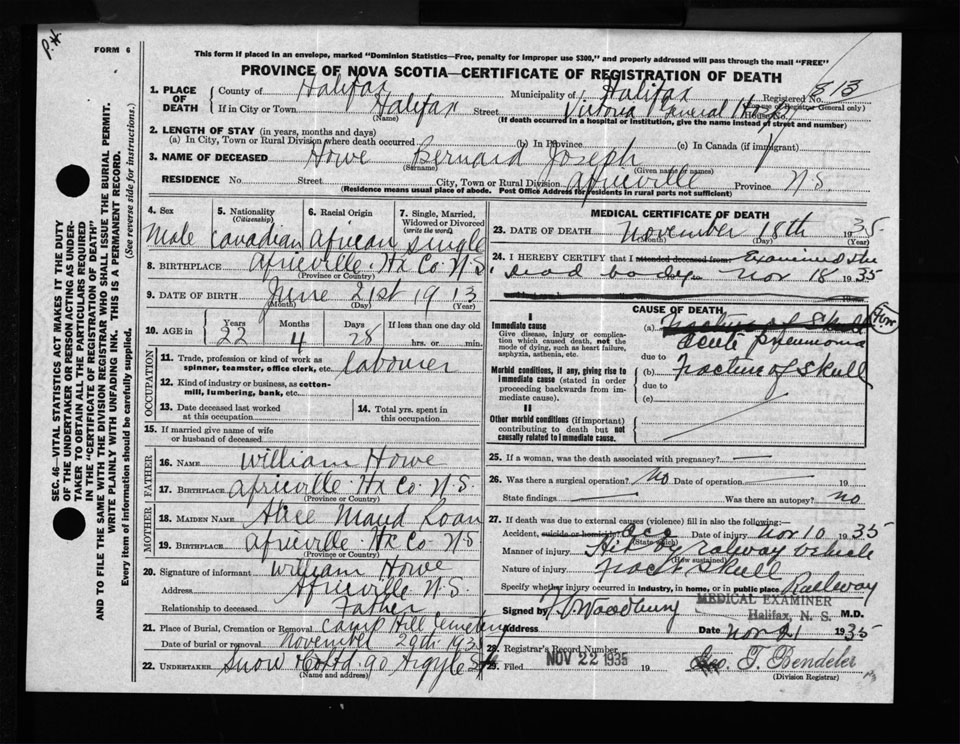 P.*
FORM 6
This form if placed in an envelope, marked "Dominion Statistics—Free, penalty for improper use $300," and properly addressed will pass through the mail "FREE"
PROVINCE OF NOVA SCOTIA—CERTIFICATE OF REGISTRATION OF DEATH
SEC. 46—VITAL STATISTICS ACT MAKES IT THE DUTY
OF THE UNDERTAKER OR PERSON ACTING AS UNDER-
TAKER TO OBTAIN ALL THE PARTICULARS REQUIRED
IN THE "CERTIFICATE OF REGISTRATION OF DEATH"
AND TO FILE THE SAME WITH THE DIVISION REGISTRAR WHO SHALL ISSUE THE BURIAL PERMIT.
WRITE PLAINLY WITH UNFADING INK. THIS IS A PERMANENT RECORD.
Every item of information should be carefully supplied. (See reverse side for instructions.)
1. PLACE OF DEATH County of Halifax Municipality of Halifax Registered No. 813
(For use of Registrar General only)
If in City or Town Halifax Street Victoria General Hosp House No.
(Name) (If death occurred in a hospital or institution, give the name instead of street and number)
2. LENGTH OF STAY (in years, months and days)
(a) In City, Town or Rural Division where death occurred (b) In Province (c) In Canada (if immigrant)
3. NAME OF DECEASED Howe Bernard Joseph
(Surname) (Given name or names)
RESIDENCE No Street City, Town or Rural Division Africville Province N.S.
(Residence means usual place of abode. Post Office Address for residents in rural parts not sufficient)
4. Sex 5. Nationality (Citizenship) 6. Racial Origin 7. Single, Married, Widowed or Divorced (write the word)
Male Canadian African Single
8. BIRTHPLACE Africville Hx Co. N.S.
(Province or Country)
9. DATE OF BIRTH June 21st 1913
(Month) (Day) (Year)
10. AGE in Years Months Days If less than one day old
22 4 28 hrs. or min.
OCCUPATION
11. Trade, profession or kind of work as spinner, teamster, office clerk, etc. labourer
12. Kind of industry or business, as cotton-mill, lumbering, bank, etc.
13. Date deceased last worked at this occupation 14. Total yrs. spent in this occupation
15. If married give name of wife or husband of deceased
FATHER
16. NAME William Howe
17. BIRTHPLACE Africville Hx Co. N.S.
(Province or Country)
MOTHER
18. MAIDEN NAME Alice Maud Roan
19. BIRTHPLACE Africville Hx Co N.S
(Province or Country)
20. Signature of informant William Howe
Address Africville N.S.
Relationship to deceased Father
21. Place of Burial, Cremation or Removal Camp Hill Cemetery
Date of burial or removal November 20th 1935
22. UNDERTAKER Snow Co Ltd 90 Argyle St
(Name and address)
MEDICAL CERTIFICATE OF DEATH
23. DATE OF DEATH November 18th 1935
(Month) (Day) (Year)
24. I HEREBY CERTIFY that I attended deceased from Examined the
dead body Nov 18 1935
CAUSE OF DEATH
I
Immediate cause
Give disease, injury or complication which caused death, not the mode of dying, such as heart failure, asphyxia, asthenia, etc.
(a) Fracture of Skull
Acute pneumonia
due to
Morbid conditions, if any, giving rise to immediate cause (stated in order proceeding backwards from immediate cause).
(b) Fracture of Skull
due to
(c)
II
Other morbid conditions (if important) contributing to death but not causally related to immediate cause.
25. If a woman, was the death associated with pregnancy?
26. Was there a surgical operation? No Date of operation 19
State findings Was there an autopsy? no
27. If death was due to external causes (violence) fill in also the following:—
Accident, suicide or homicide? acc Date of injury Nov 10 1935
(State which)
Manner of injury Hit by railway vehicle
(How sustained)
Nature of injury Fract skull
Specify whether injury occurred in industry, in home, or in public place Railway
Signed by Woodbury M.D.
MEDICAL EXAMINER
Halifax, N. S.
Address Date Nov 21 1935
28. Registrar's Record Number
29. Filed NOV 22 1935 19 Geo. T. Bendeler
(Division Registrar)